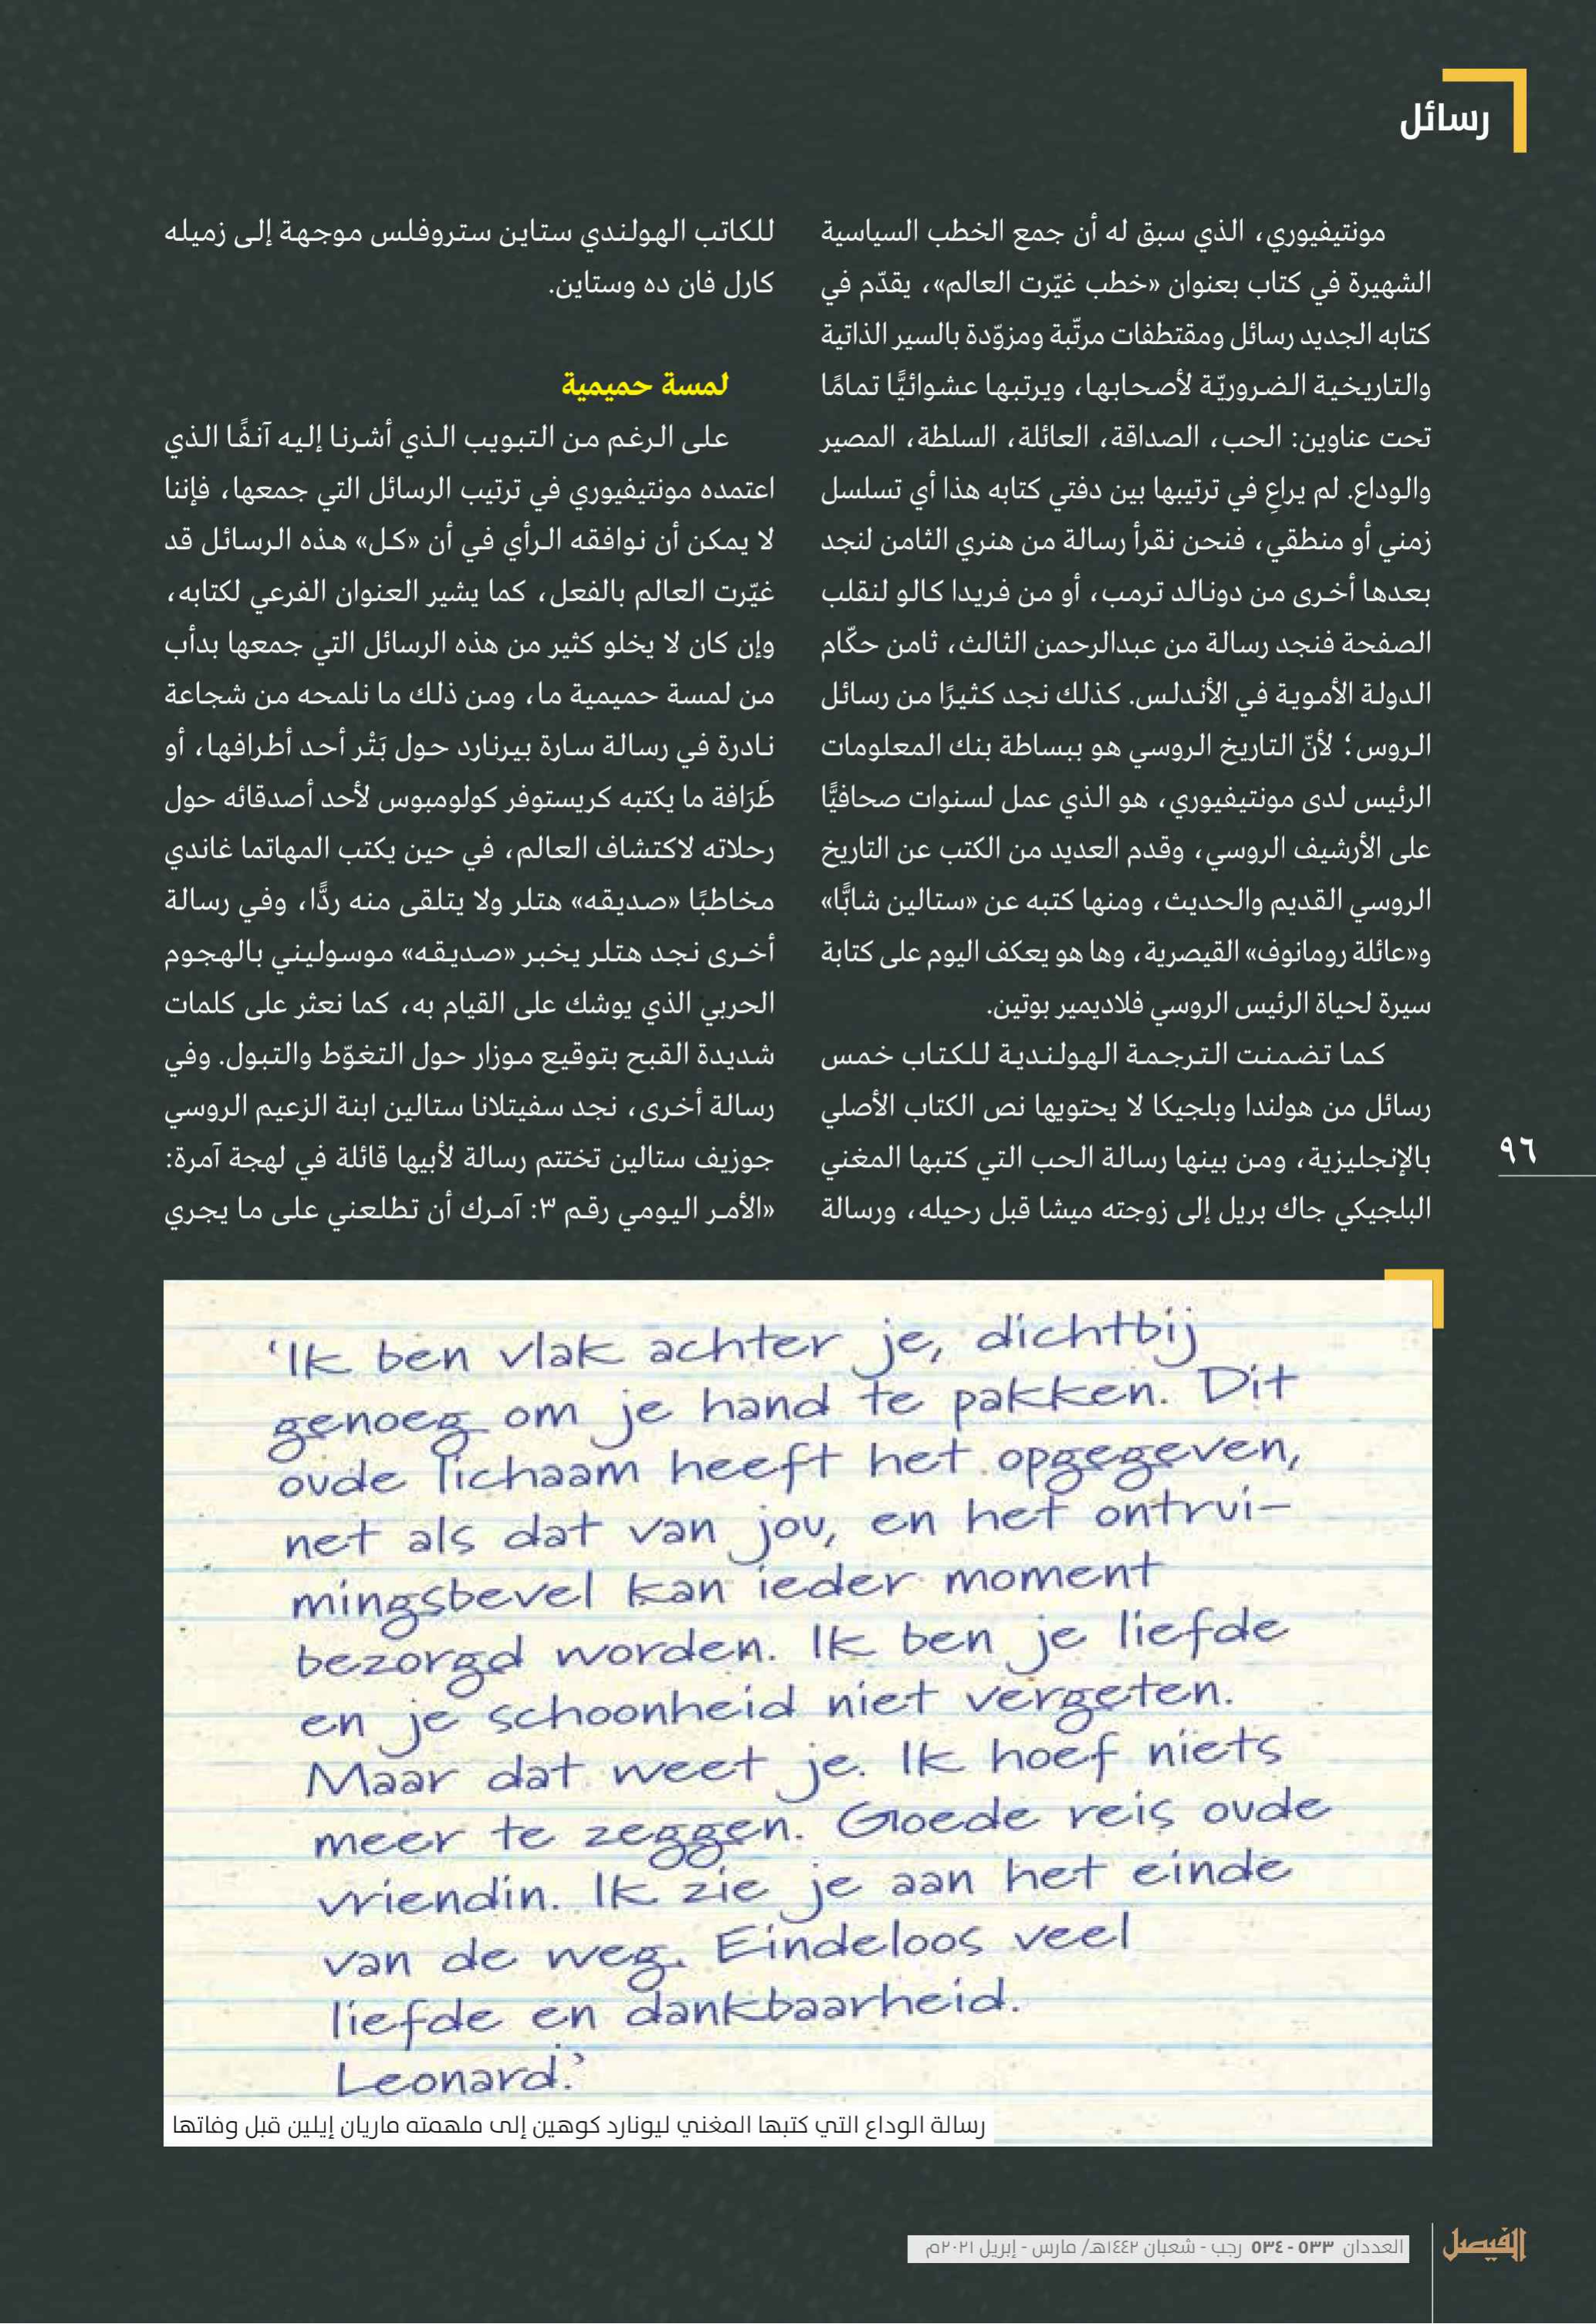 رسائل
مونتيفيوري، الذي سبق له أن جمع الخطب السياسية
الشهيرة في كتاب بعنوان «خطب غيّرت العالم»، يقدّم في
كتابه الجديد رسائل ومقتطفات مرتّبة ومزوّدة بالسير الذاتية
والتاريخية الضروريّة لأصحابها، ويرتبها عشوائيًّا تمامًا
تحت عناوين: الحب، الصداقة، العائلة، السلطة، المصير
والوداع. لم يراعِ في ترتيبها بين دفتي كتابه هذا أي تسلسل
زمني أو منطقي، فنحن نقرأ رسالة من هنري الثامن لنجد
بعدها أخرى من دونالد ترمب، أو من فريدا كالو لنقلب
الصفحة فنجد رسالة من عبدالرحمن الثالث، ثامن حكّام
الدولة الأموية في الأندلس. كذلك نجد كثيرًا من رسائل
الروس؛ لأنّ التاريخ الروسي هو ببساطة بنك المعلومات
الرئيس لدى مونتيفيوري، هو الذي عمل لسنوات صحافيًّا
على الأرشيف الروسي، وقدم العديد من الكتب عن التاريخ
الروسي القديم والحديث، ومنها كتبه عن «ستالين شابًّا»
و«عائلة رومانوف» القيصرية، وها هو يعكف اليوم على كتابة
سيرة لحياة الرئيس الروسي فلاديمير بوتين.
كما تضمنت الترجمة الهولندية للكتاب خمس
رسائل من هولندا وبلجيكا لا يحتويها نص الكتاب الأصلي
بالإنجليزية، ومن بينها رسالة الحب التي كتبها المغني
البلجيكي جاك بريل إلى زوجته ميشا قبل رحيله، ورسالة
للكاتب الهولندي ستاين ستروفلس موجهة إلى زميله
كارل فان ده وستاين.
لمسة حميمية
على الرغم من التبويب الذي أشرنا إليه آنفًا الذي
اعتمده مونتيفيوري في ترتيب الرسائل التي جمعها، فإننا
لا يمكن أن نوافقه الرأي في أن «كل» هذه الرسائل قد
غيّرت العالم بالفعل، كما يشير العنوان الفرعي لكتابه،
وإن كان لا يخلو كثير من هذه الرسائل التي جمعها بدأب
من لمسة حميمية ما، ومن ذلك ما نلمحه من شجاعة
نادرة في رسالة سارة بيرنارد حول بَتْر أحد أطرافها، أو
ظَرَافة ما يكتبه كريستوفر كولومبوس لأحد أصدقائه حول
رحلاته لاكتشاف العالم، في حين يكتب المهاتما غاندي
مخاطبًا «صديقه» هتلر ولا يتلقى منه ردًّا، وفي رسالة
أخرى نجد هتلر يخبر «صديقه» موسوليني بالهجوم
الحربي الذي يوشك على القيام به، كما نعثر على كلمات
شديدة القبح بتوقيع موزار حول التغوّط والتبول. وفي
رسالة أخرى، نجد سفيتلانا ستالين ابنة الزعيم الروسي
جوزيف ستالين تختتم رسالة لأبيها قائلة في لهجة آمرة:
«الأمر اليومي رقم ٣: آمرك أن تطلعني على ما يجري
٩٦
'Ik ben vlak achter je, dichtbij
genoeg om je hand te pakken. Dit
oude lichaam heeft het opgegeven,
net als dat van jou, en het ontrui-
mingsbevel kan ieder moment
bezorgd worden. Ik ben je liefde
en je schoonheid niet vergeten.
Maar dat weet je. Ik hoef niets
meer te zeggen. Goede reis oude
vriendin. Ik zie je aan het einde
van de weg. Eindeloos veel
liefde en dankbaarheid.
Leonard.'
رسالة الوداع التي كتبها المغني ليونارد كوهين إلى ملهمته ماريان إيلين قبل وفاتها
العددان ٥٣٣ - ٥٣٤ رجب - شعبان ١٤٤٢هـ/ مارس - إبريل ٢٠٢١م
الفيصل